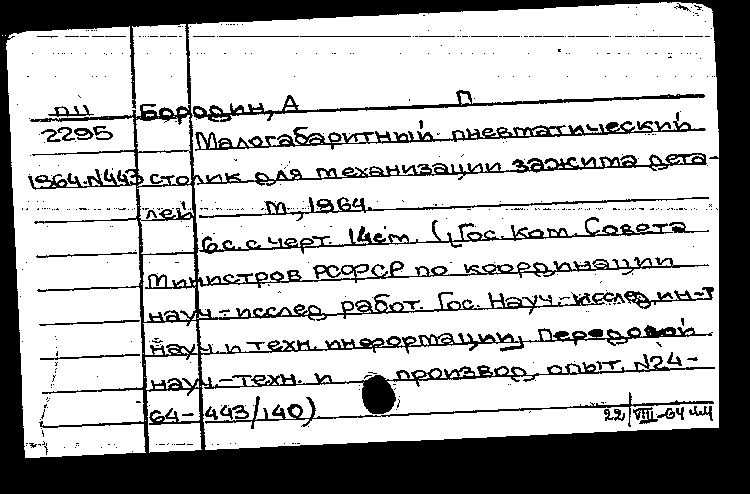 ПП Бородин, А П
2295 Малогабаритный пневматический
1964.N443 столик для механизации зажима дета-
лей М., 1964.
6 с. с черт. 14см. (Гос. Ком. Совета
Министров РСФСР по координации
науч.-исслед работ. Гос. Науч.-исслед ин-т
науч. и техн. информации, Передовой
науч.-техн. и производ. опыт. N24-
64-443/140)
22/VIII-64